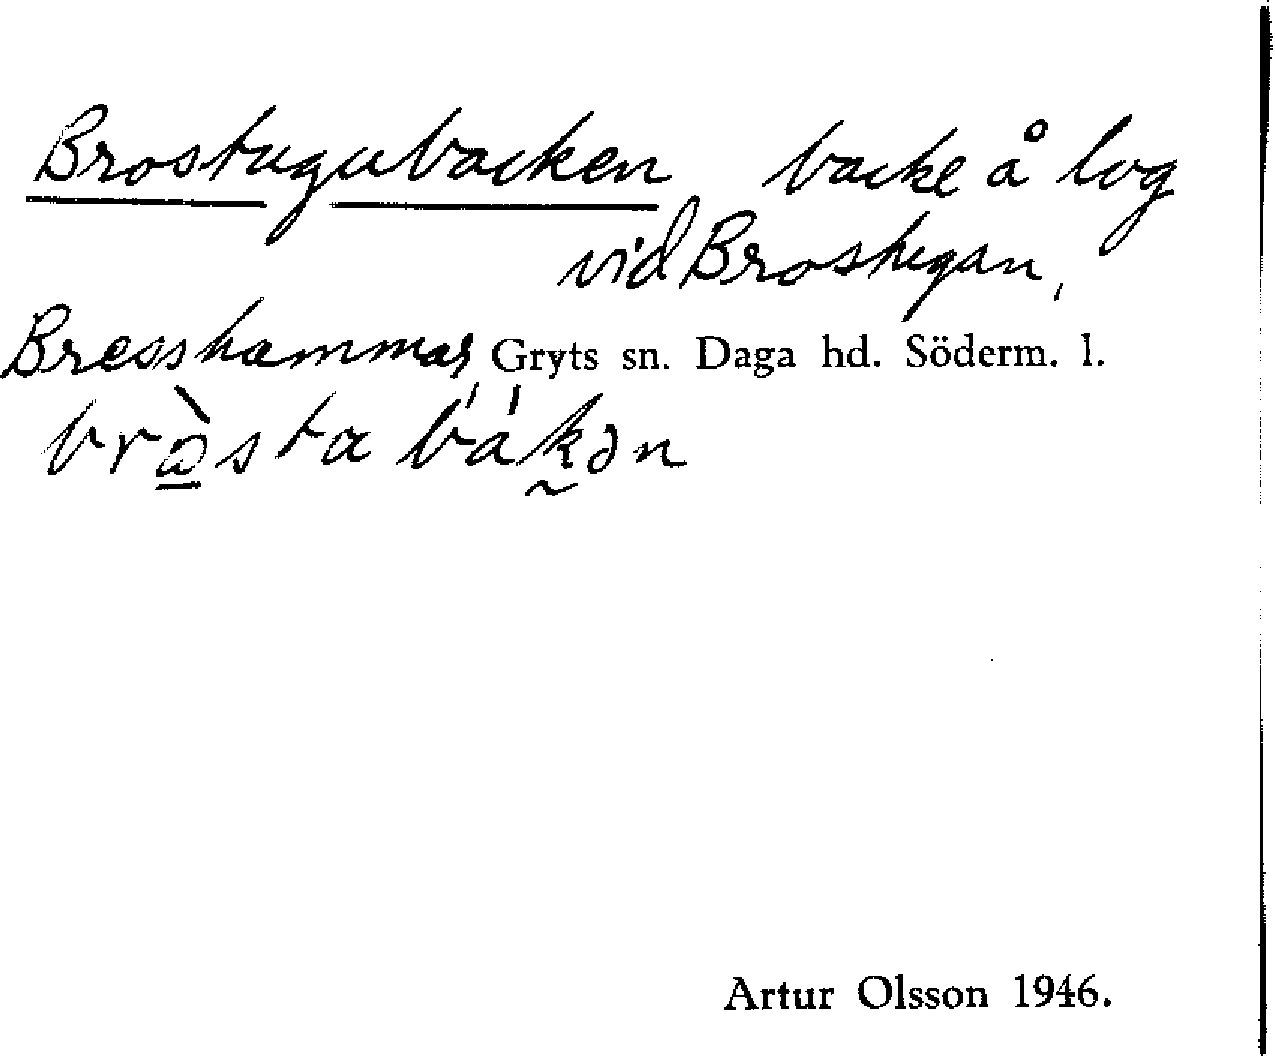 Brostugubacken backe å lvg
vid Brostugan,
Bresshammar, Gryts sn. Daga hd. Söderm. l.
Artur Olsson 1946.